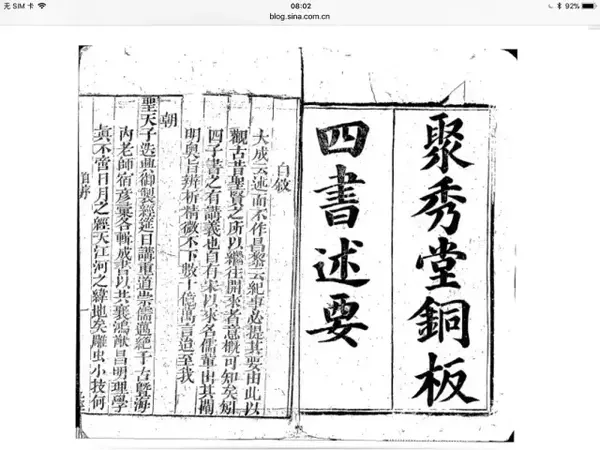 无 SIM 卡
08:02
92%
blog.sina.com.cn
聚秀堂銅板
四書述要
自敘
大成云述而不作昌黎云紀事必提其要由此以
觀古昔聖賢之所以繼往開來者意概可知矣矧
四子書之有講義也自有宋以來名儒輩出其闡
明奧旨辨析精微不下數十億萬言迨至我
朝
聖天子逸典御製經筵日講重道崇儒邁絕千古暨海
內老師宿彥彙各輯成書以共襄鴻猷昌明理學
真不啻日月之經天江河之緯地矣雕虫小技何
自序
一